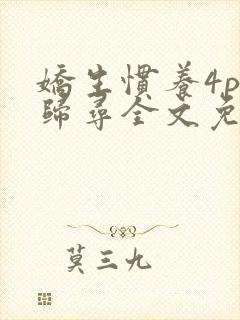 嬌生慣養4p
歸尋全文免
莫三九